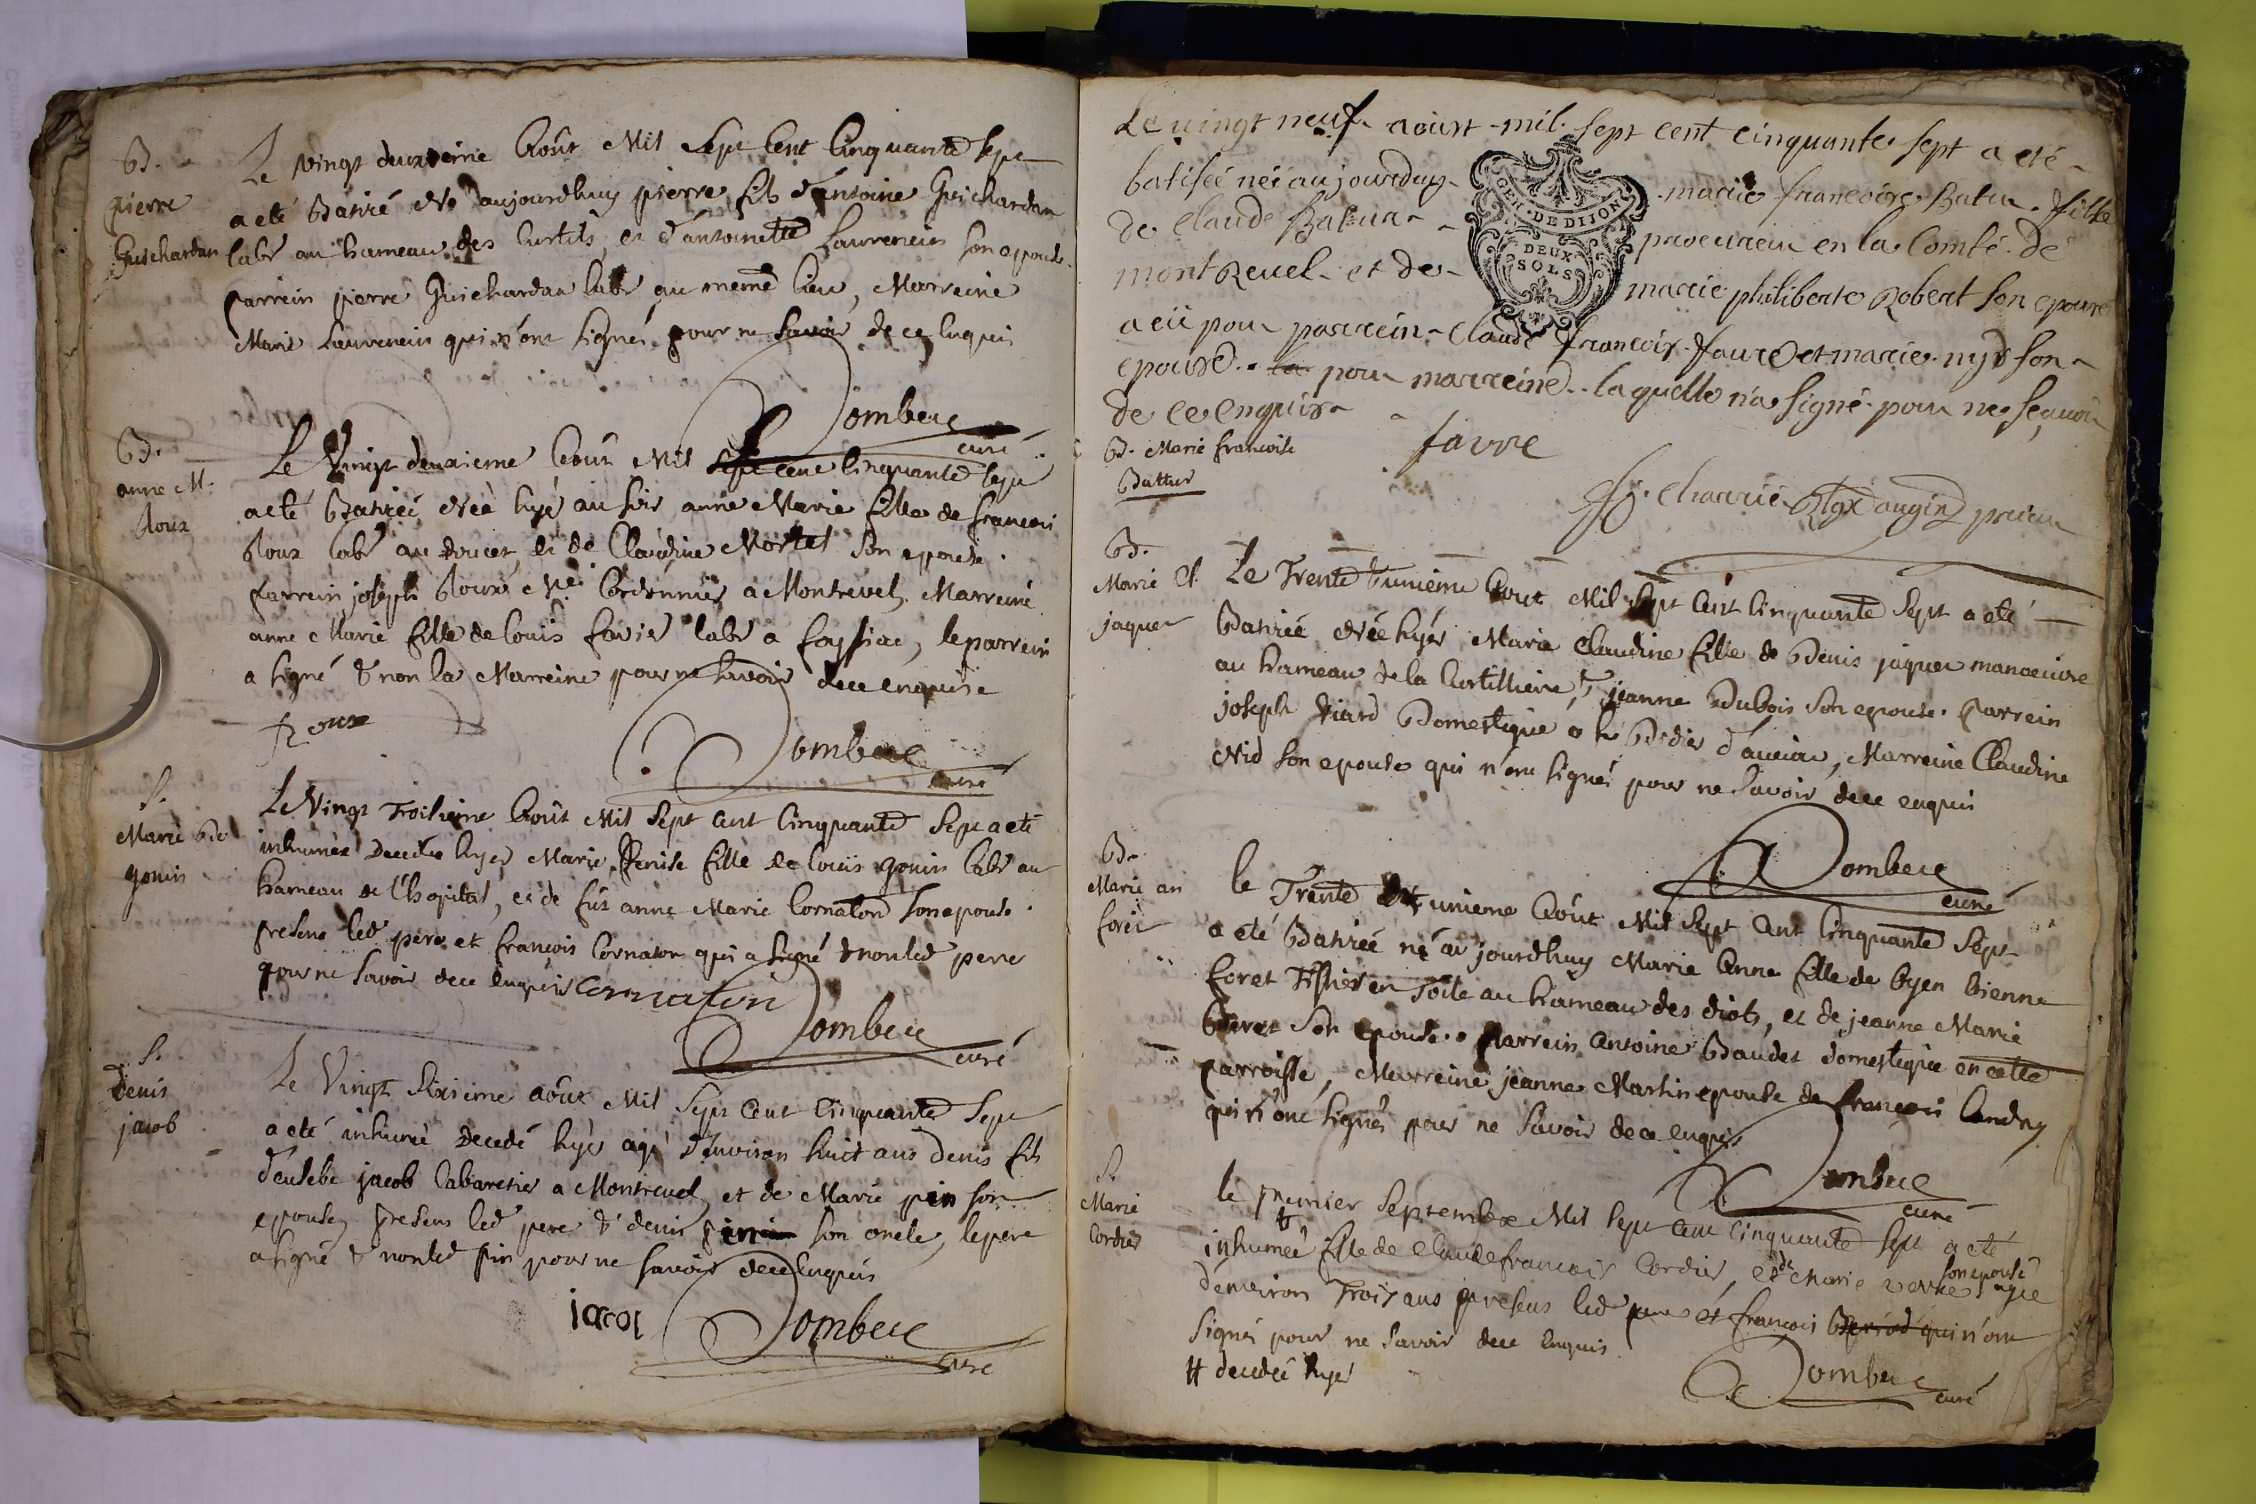 B.
pierre
Guichardan
Le vingt deuxieme Août Mil Sept Cent Cinquante Sept
a eté Batisé né aujourdhuy pierre fils d'antoine Guichardan
labr au hameau des Curtils, et d'antoinette Laurencin son epouse.
parrein pierre Guichardan labr au meme lieu, Marreine
Marie Laurencin qui n'ont signés pour ne savoir de ce enquis
Dombeue
curé
B.
anne M.
Roux
Le Vingt deuxieme Août Mil Sept Cent Cinquante Sept
a eté Batisée née hyé au soir anne Marie fille de francois
Roux labr au doucet, et de Claudine Mortel son epouse.
parrein joseph Roux Me Cordonnier a Montrevel, Marreine
anne Marie fille de Louis favier labr a foyssiac, le parrein
a signé & non la Marreine pour ne savoir de ce enquise
Roux
Dombeue
curé
S.
Marie De
gonin
Le Vingt Troisieme Août Mil Sept Cent Cinquante Sept a eté
inhumée Decedée hyer Marie Denise fille de Louis gonin labr au
hameau de l'hopital, et de fût anne Marie Cornaton son epouse.
presens led pere et francois Cornaton qui a signé & non led pere
pour ne savoir de ce enquis Cornaton
Dombeue
curé
S.
Denis
jacob
Le Vingt Sixieme août Mil Sept Cent Cinquante Sept
a eté inhumé Decedé hyér agé d'environ huit ans Denis fils
d'eusebe jacob Cabaretier a Montrevel, et de Marie pin son
epouse, presens led pere & denis son oncle, le pere
a signé & non led pin pour ne savoir de ce enquis
jacob
Dombeue
curé
Le vingt neuf aoust mil sept cent cinquante sept a eté
batisée née aujourduy marie francoise Batur fille
de Claude Batur procureur en la Comté de
montrevel et de marie philiberte Robert son epouse
a eü pour parrein Claude francois favre et marie nyd son
epouse. la pour marreine laquelle n'a signé pour ne sçavoir
de ce enquise
GEN. DE DIJON
DEUX
SOLS
favre
B. Marie francoise
Battur
B.
Marie Cl.
jaquer
Le Trente Unieme Aout Mil Sept Cent Cinquante Sept a eté
Batisée née hyér Marie Claudine fille de Denis jaquer manoeuvre
au hameau de la Curtilliere, & jeanne Dubois son epouse. parrein
joseph Domestique d'auciac, Marreine Claudine
Nid son epouse qui n'ont signés pour ne savoir de ce enquis
Dombeue
curé
B.
Marie an
foret
le Trente unieme Août Mil Sept Cent Cinquante Sept
a eté Batisée né aujourdhuy Marie Anne fille de
foret Tissier en Toile au hameau des diots, et de jeanne Marie
son epouse. parrein antoine Baudet domestique en cette
parroisse, Marreine jeanne Martin epouse de francois landry
qui n'ont signés pour ne savoir de ce enquis
Dombeue
curé
S.
Marie
Cordier
le premier Septembre Mil Sept Cent Cinquante Sept a eté
inhumée # fille de Claude francois Cordier, et de Marie son epouse agée
d'environ Trois ans presens led pere et francois qui n'ont
signés pour ne savoir de ce enquis
# decedée hyer
Dombeue
curé